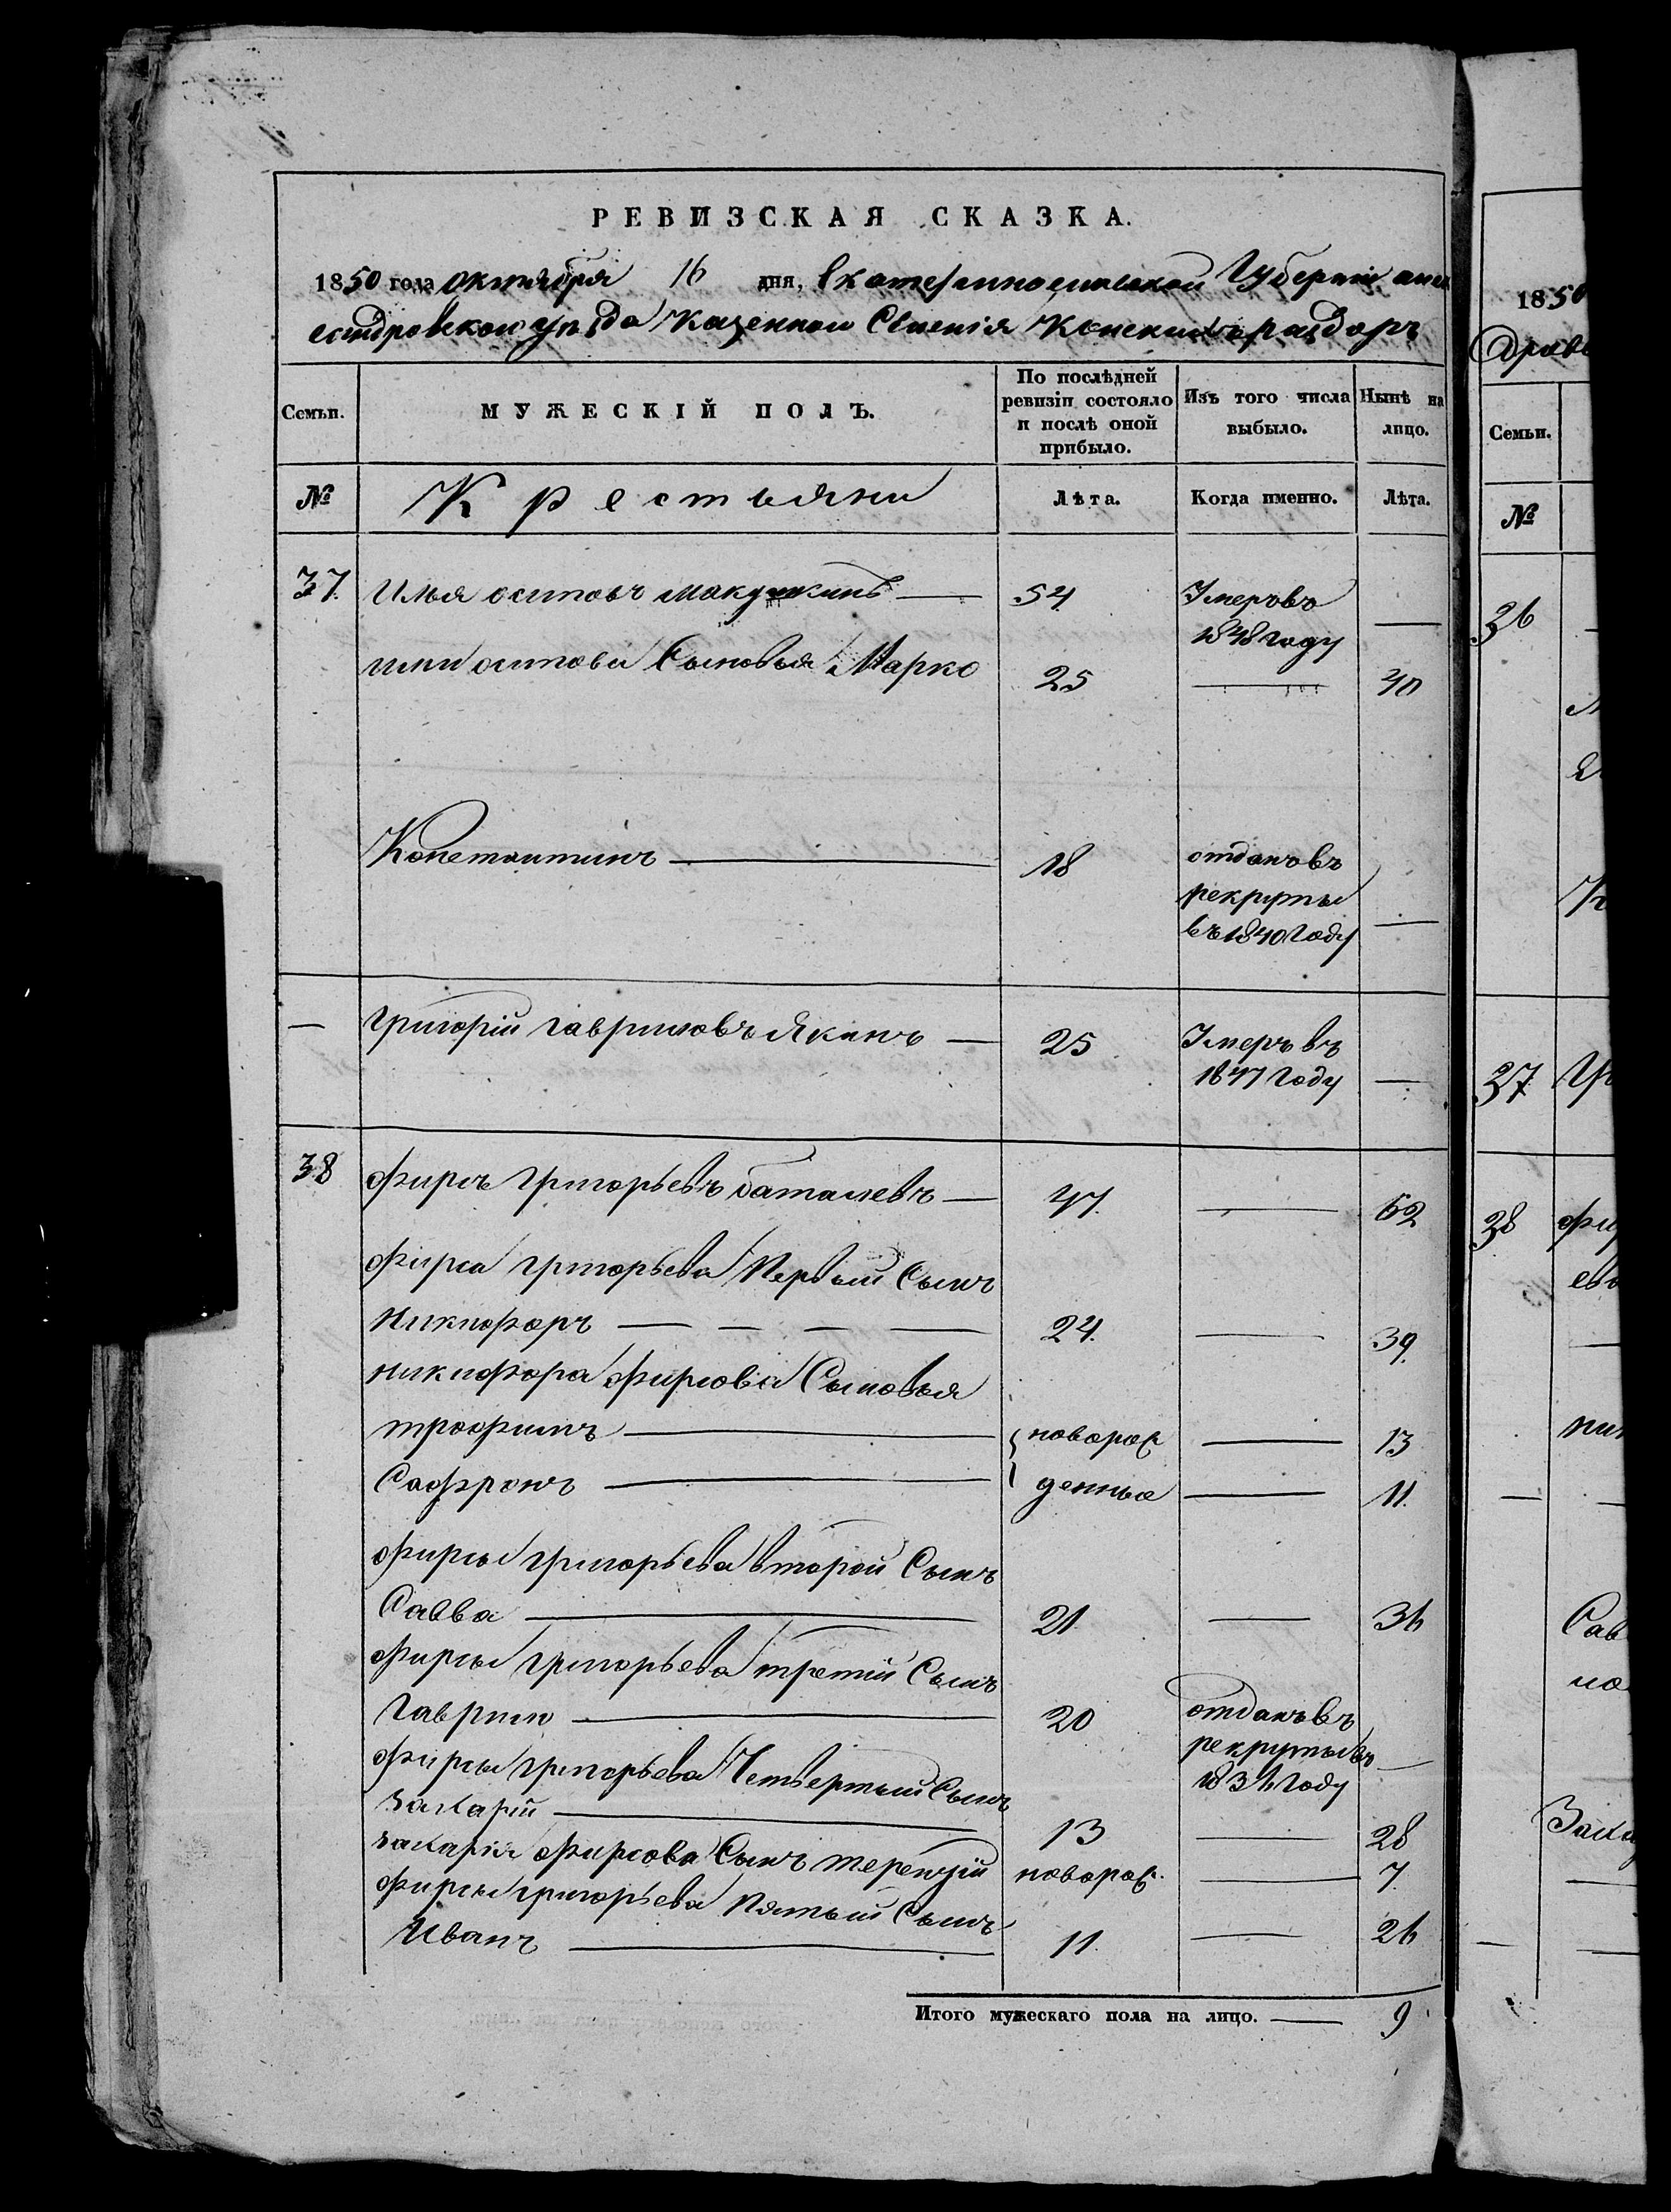 РЕВИЗСКАЯ СКАЗКА.
1850 года октября 16 дня, Екатеринославской Губернии алек
сандровскаго уезда казеннаго Селения Конских раздор
Семьи.
МУЖЕСКІЙ ПОЛЪ.
По послѣдней ревизіи состояло и послѣ оной прибыло.
Изъ того числа выбыло.
Нынѣ на лицо.
№
Крестьяни
Лѣта.
Когда именно.
Лѣта.
37. Илья осиповъ макушкинъ — 54 Умеръ въ
1848 году —
ильи осипова Сыновья Марко 25 — 40
Константинъ — 18 отданъ въ
рекруты
въ 1840 году —
— Григорій гавриловъ Якинъ — 25 Умеръ въ
1847 году —
38 фирсъ григорьевъ баташевъ — 47. — 62
фирса григорьева Первый Сынъ
Никифоръ — — — — 24. — 39.
никифора фирсова Сыновья
трофимъ — новорож — 13
Сафронъ — денные — 11.
фирсы григорьева второй Сынъ
Савва — 21 — 36
фирсы григорьева третій Сынъ
гаврило — 20 отданъ въ
рекруты въ —
1836 году
фирсы григорьева Четвертый Сынъ
захарій — 13 — 28
захарія фирсова Сынъ терентій новорож. — 7.
фирсы григорьева Пятый Сынъ
Иванъ — 11. — 26
Итого мужескаго пола на лицо. — 9
1850
Семьи.
№
36
37
38